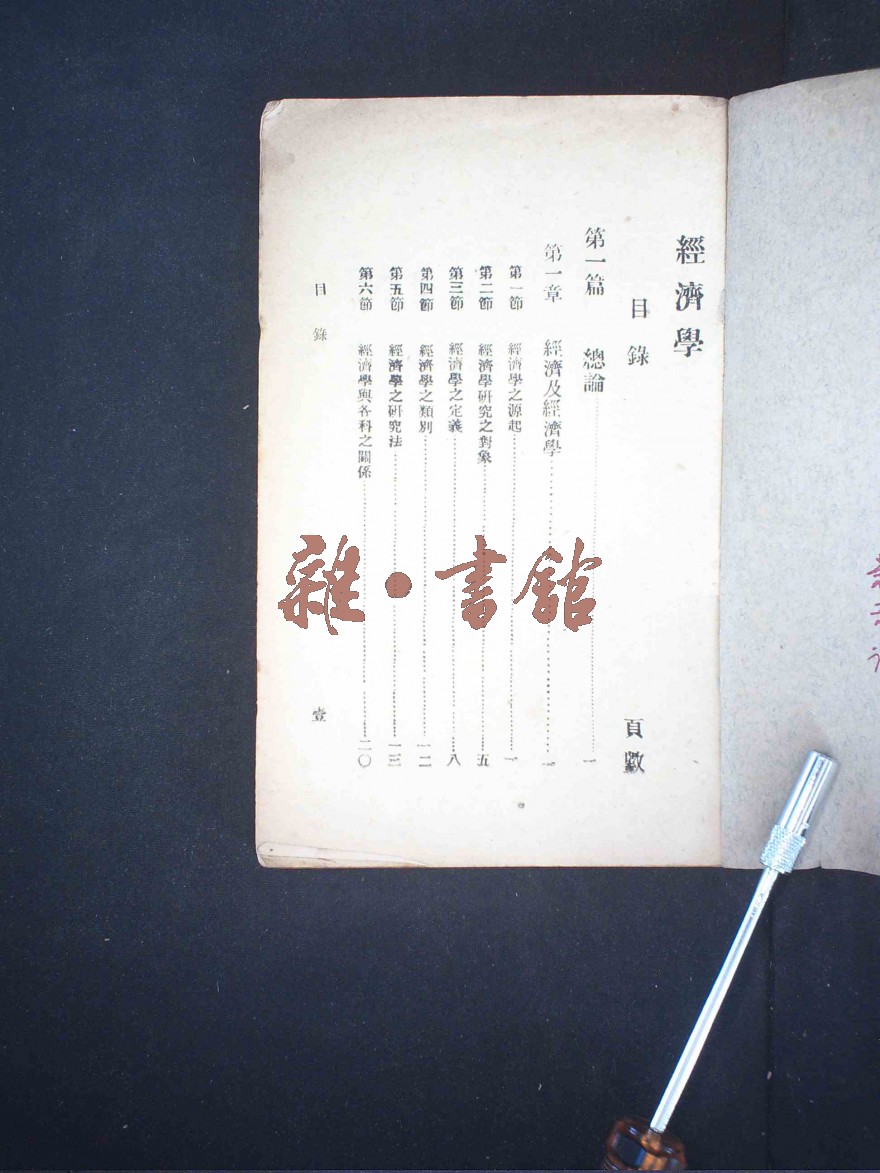 經濟學
目錄 頁數
第一篇 總論 一
第一章 經濟及經濟學 一
第一節 經濟學之源起 一
第二節 經濟學研究之對象 五
第三節 經濟學之定義 八
第四節 經濟學之類別 一二
第五節 經濟學之研究法 一三
第六節 經濟學與各科之關係 二〇
目錄 壹
雜•書館